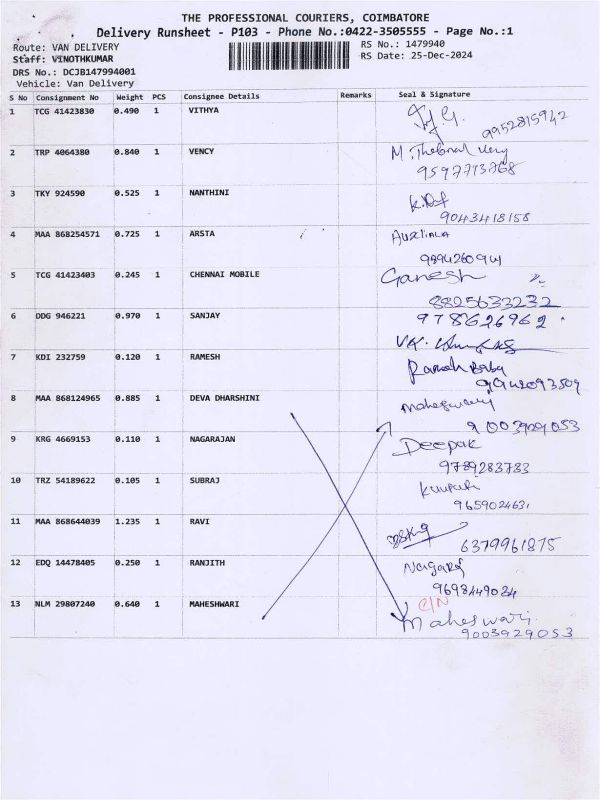 THE PROFESSIONAL COURIERS, COIMBATORE
Delivery Runsheet - P103 - Phone No.:0422-3505555 - Page No.:1
Route: VAN DELIVERY
RS No.: 1479940
Staff: VINOTHKUMAR
RS Date: 25-Dec-2024
DRS No.: DCJB147994001
Vehicle: Van Delivery
S No Consignment No Weight PCS Consignee Details Remarks Seal & Signature
1 TCG 41423830 0.490 1 VITHYA
9952815942
2 TRP 4064380 0.840 1 VENCY
9597713768
3 TKY 924590 0.525 1 NANTHINI
9043418158
4 MAA 868254571 0.725 1 ARSTA
5 TCG 41423403 0.245 1 CHENNAI MOBILE Ganesh
8825633232
6 DDG 946221 0.970 1 SANJAY 978626962
7 KDI 232759 0.120 1 RAMESH
8 MAA 868124965 0.885 1 DEVA DHARSHINI
9003929053
9 KRG 4669153 0.110 1 NAGARAJAN Deepak
9789283783
10 TRZ 54189622 0.105 1 SUBRAJ
9659024631
11 MAA 868644039 1.235 1 RAVI
6379961875
12 EDQ 14478405 0.250 1 RANJITH Nagaraj
9698449024
C/N
13 NLM 29807240 0.640 1 MAHESHWARI Maheswari
9003929053